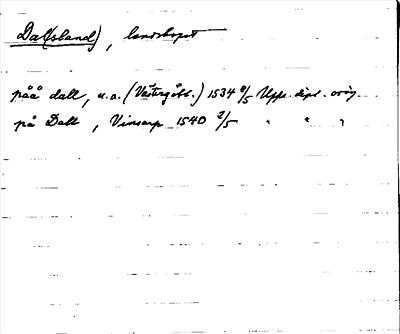 Dal(sland), landskapet
påå dall, u.o. (Västergötl.) 1534 8/5 Upps. dipl. orig.
på Dall, Vinsarp 1540 2/5 " " "